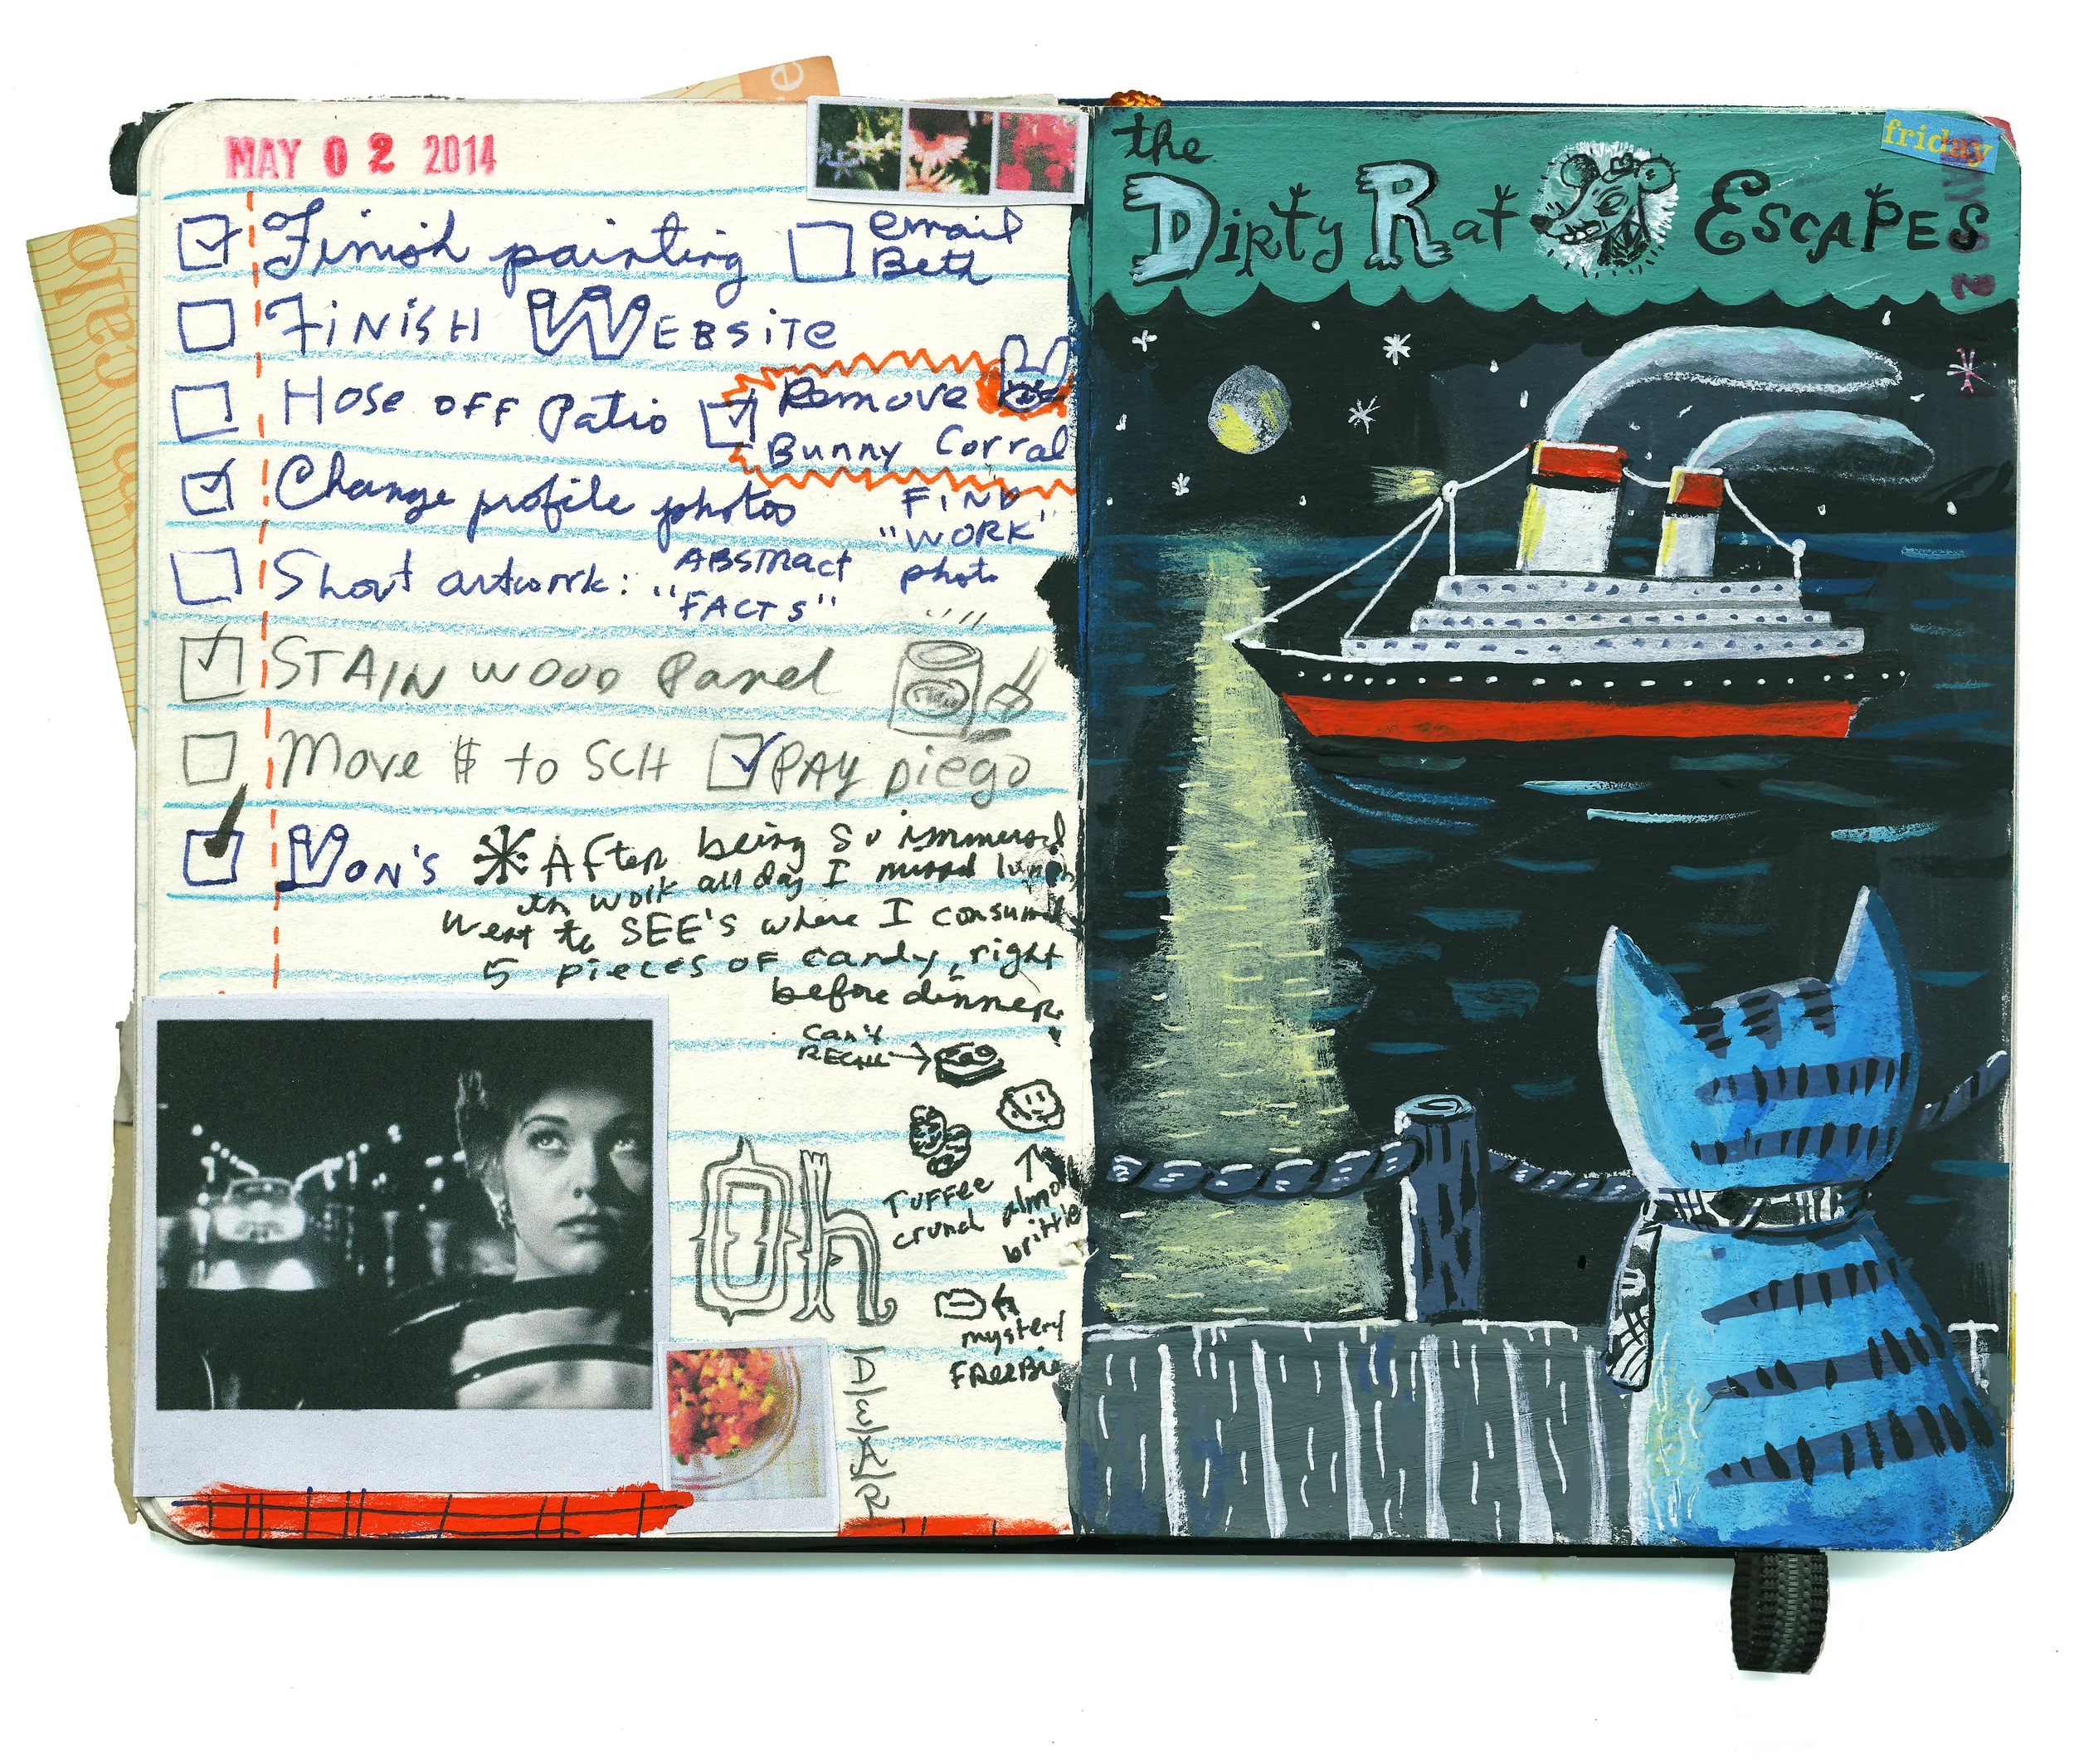 MAY 02 2014
Finish painting
email
Beth
FINISH WEBSITE
HOSE OFF Patio
Remove
Bunny Corral
Change profile photos
FIND
"WORK"
photo
Short artwork: "ABSTRACT
"FACTS"
STAIN WOOD Panel
Move $ to SCH
PAY Diego
VON'S
* After being so immersed
in work all day I missed lunch
Went to SEE'S where I consumed
5 pieces of candy, right
before dinner.
can't
RECALL
TOFFEE
crunch
almond
brittle
mystery
FREEBIE
Oh
DEAR
the
DIRTY RAT ESCAPES
friday
MAY 02